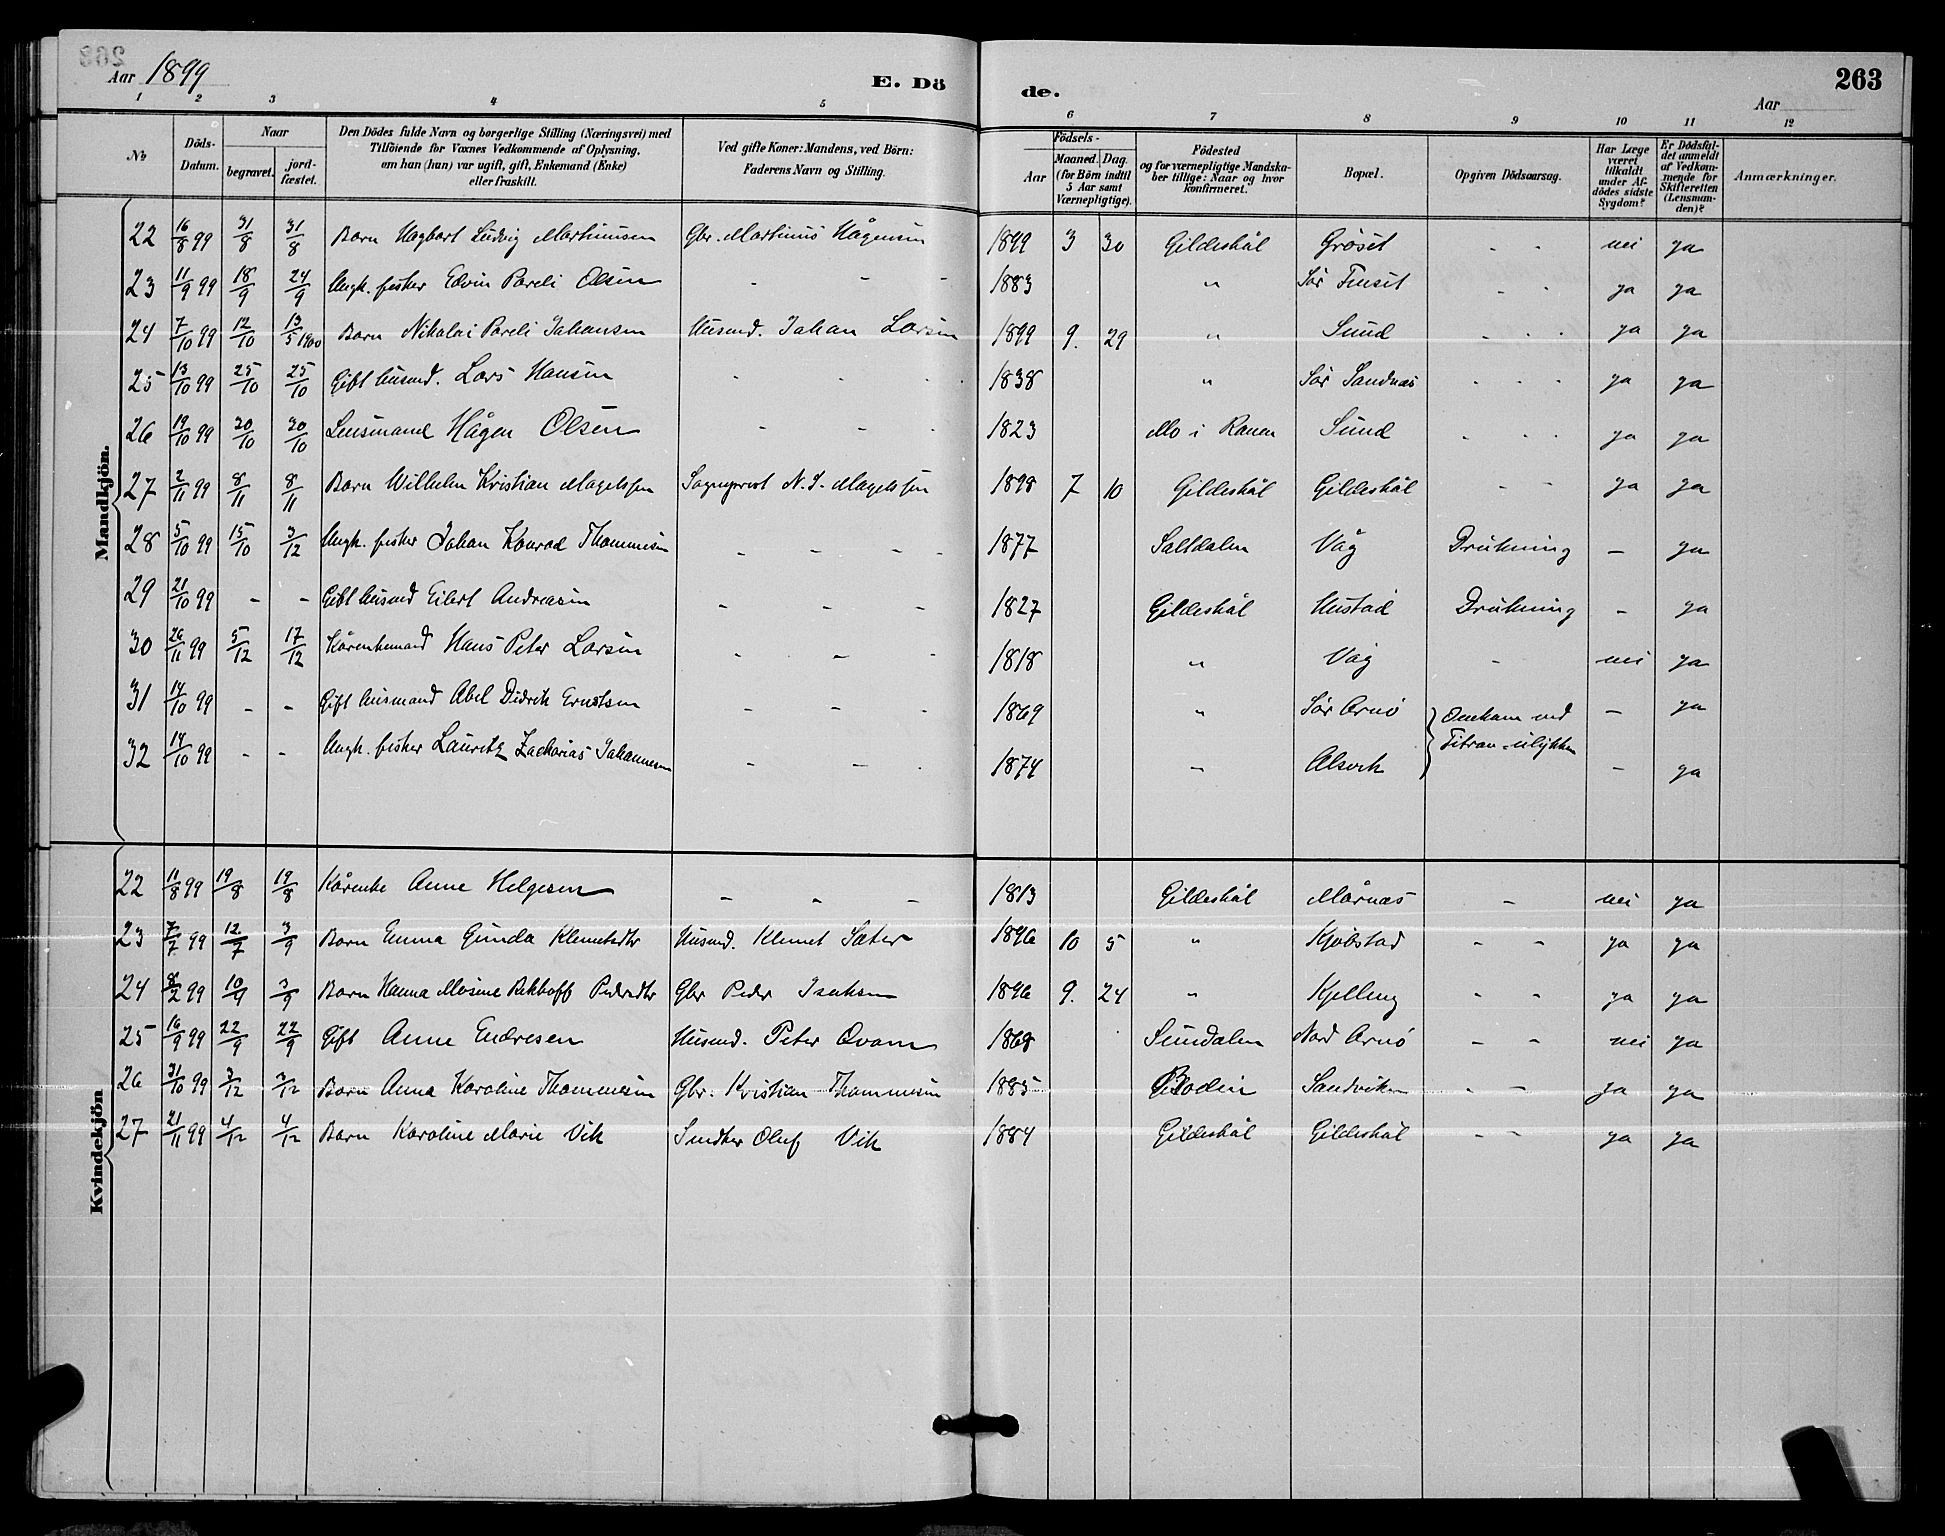 263
Aar 1899 E. Dö de. Aar
1 2 3 4 5 6 7 8 9 10 11 12
No
Döds-Datum.
Naar
begravet. jord-fæstet.
Den Dödes fulde Navn og borgerlige Stilling (Næringsvei) med
Tilföiende for Voxnes Vedkommende af Oplysning,
om han (hun) var ugift, gift, Enkemand (Enke)
eller fraskilt.
Ved gifte Koner: Mandens, ved Börn:
Faderens Navn og Stilling.
Födsels-
Aar Maaned. Dag.
(for Börn indtil
5 Aar samt
Værnepligtige).
Födested
og for værnepligtige Mandska-
ber tillige: Naar og hvor
konfirmeret.
Bopæl.
Opgiven Dödsaarsag.
Har Læge
været
tilkaldt
under Af-
dödes sidste
Sygdom?
Er Dödsfal-
det anmeldt
af Vedkom-
mende for
Skifteretten
(Lensman-
den)?
Anmærkninger.
Mandkjön.
22 16/8 99 31/8 31/8 Barn Hagbart Ludvig Martinusen Gbr. Martinus Hågensen 1899 3 30 Gildeskål Grøset - - nei ja
23 11/9 99 18/9 24/9 Ungk. fisker Edvin Pareli Olsen - - - 1883 " Sør Finset - - ja ja
24 7/10 99 12/10 13/5 1900 Barn Nikolai Pareli Johansen Husmd. Johan Larsen 1899 9. 29 " Sund - - - ja ja
25 13/10 99 25/10 25/10 Gift husmd. Lars Hansen - - - 1838 " Sør Sandnæs - - - ja ja
26 19/10 99 30/10 30/10 Lensmand Hågen Olsen - - - 1823 Mo i Ranen Sund - - - ja ja
27 2/11 99 8/11 8/11 Barn Wilhelm Kristian Magelssen Sogneprest N. S. Magelssen 1898 7 10 Gildeskål Gildeskål - - ja ja
28 5/10 99 15/10 3/12 Ungk. fisker Johan Konrad Thommesen - - - - 1877 Saltdalen Våg Drukning - ja
29 21/10 99 - - Gift husmd Eilert Andreasen - - - 1827 Gildeskål Hustad Drukning - ja
30 26/11 99 5/12 17/12 Kårenkemand Hans Peter Larsen - - - 1818 " Våg - nei ja
31 14/10 99 - - Gift husmand Abel Didrik Ernstsen - - - 1869 " Sør Arnø Omkom ved - ja
32 14/10 99 - - Ungk. fisker Lauritz Zacharias Johannesen - - - 1874 " Alsvik Titran-ulykken - ja
Kvindekjön
22 11/8 99 19/8 19/8 Kårenke Anne Helgesen - - - 1813 Gildeskål Mårnæs - nei ja
23 7/7 99 12/7 3/9 Barn Emma Gunda Klemetsdtr Husmd. Klemet Sæter 1896 10 5 " Kjøbstad - - ja ja
24 8/2 99 10/9 3/9 Barn Hanna Mosine Rekhoff Pedersdtr Gbr Peder Isaksen 1896 9. 24 " Kjelling - - ja ja
25 16/9 99 22/9 22/9 Gift Anne Endresen Husmd. Peter Qvam 1868 Sundalen Nord Arnø - - nei ja
26 31/10 99 3/12 3/12 Barn Anna Karoline Thommesen Gbr. Kristian Thommesen 1885 Bodin Sandviken - - ja ja
27 21/11 99 4/12 4/12 Barn Karoline Marie Vik Snedker Oluf Vik 1884 Gildeskål Gildeskål - - ja ja